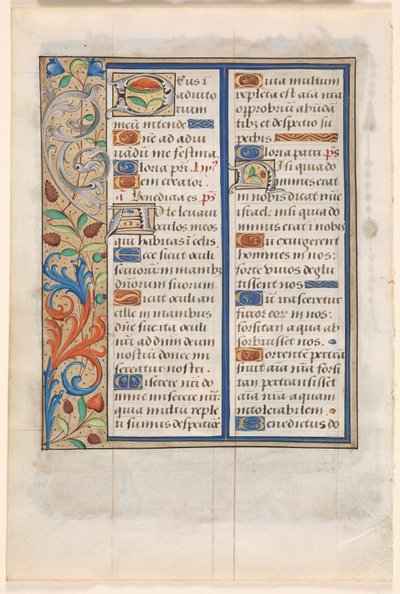 Deus i
adiuto
rium
meũ intende
Dñe ad adiu
uadũ me festina
Gloria pr̃i.
Uem creator
Benedicta es. p̃s
Ad te leuaui
oculos meos
qui habitas i celis.
Ecce sicut oculi
seruorũ in manib₉
dñor suorum
Sicut oculi an
cille in manibus
dñe sue: ita oculi
nr̃i ad dñm deum
nostrũ donec mi
sereatur nostri.
Miserere nr̃i dñe
miserere nr̃i:
quia multũ reple
ti sumus despectiõe
Quia multum
repleta est aĩa nr̃a
opprobriũ abũda
tib₉ et despectio su
perbis.
Gloria patri. p̃s
Nisi quia do
minus erat
in nobis dicat nũc
israel: nisi quia do
minus erat i nobis
Cũ exurgerent
homines in nos:
forte viuos deglu
tissent nos
Cũ irasceretur
furor eor in nos:
forsitan aqua ab
sorbuisset nos.
Torrentẽ pertrã
siuit aĩa nr̃a: forsi
tan pertransisset
aĩa nr̃a aquam
intolerabilem.
Benedictus do